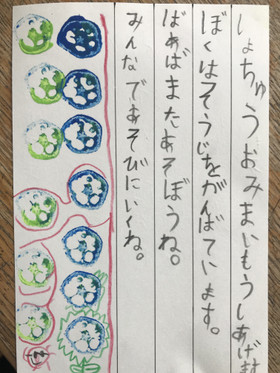 しょちゅうおみまいもうしあげます
ぼくはそうじをがんばています。
ばぁばまたあそぼうね。
みんなであそびにいくね。